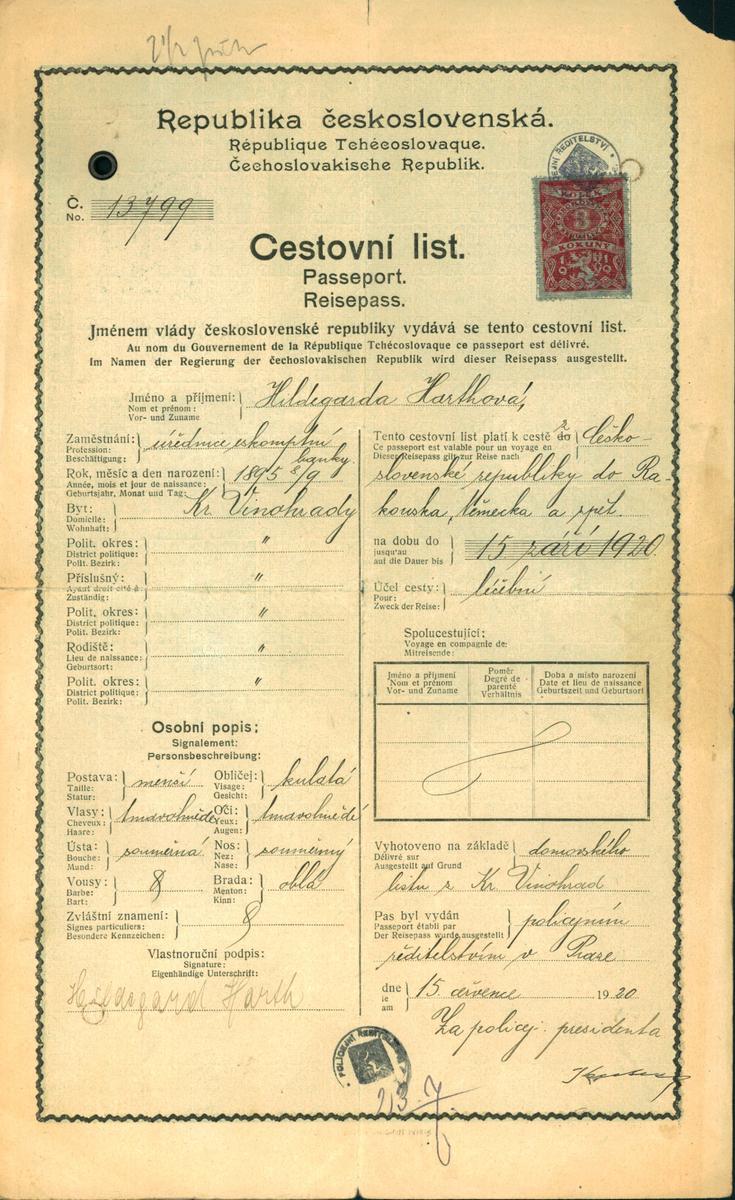 Republika československá.
République Tchécoslovaque.
Čechoslovakische Republik.
POLICEJNÍ ŘEDITELSTVÍ
Č.
No. 13799
KOLEK
3
KORUNY
1919
Cestovní list.
Passeport.
Reisepass.
Jménem vlády československé republiky vydává se tento cestovní list.
Au nom du Gouvernement de la République Tchécoslovaque ce passeport est délivré.
Im Namen der Regierung der čechoslovakischen Republik wird dieser Reisepass ausgestellt.
Jméno a příjmení: Hildegarda Harthová,
Nom et prénom:
Vor- und Zuname
Zaměstnání: úřednice eskomptní
Profession: banky
Beschäftigung:
Rok, měsíc a den narození: 1895 8/9
Année, mois et jour de naissance:
Geburtsjahr, Monat und Tag:
Byt: Kr. Vinohrady
Domicile:
Wohnhaft:
Polit. okres: "
District politique:
Polit. Bezirk:
Příslušný: "
Ayant droit cité à
Zuständig:
Polit. okres: "
District politique:
Polit. Bezirk:
Rodiště: "
Lieu de naissance:
Geburtsort:
Polit. okres: "
District politique:
Polit. Bezirk:
Osobní popis:
Signalement:
Personsbeschreibung:
Postava: menší Obličej: kulatá
Taille: Visage:
Statur: Gesicht:
Vlasy: tmavohnědé Oči: tmavohnědé
Cheveux: Yeux:
Haare: Augen:
Ústa: souměrná Nos: souměrný
Bouche: Nez:
Mund: Nase:
Vousy: Brada: oblá
Barbe: Menton:
Bart: Kinn:
Zvláštní znamení:
Signes particuliers:
Besondere Kennzeichen:
Vlastnoruční podpis:
Signature:
Eigenhändige Unterschrift:
Hildegard Harth
Tento cestovní list platí k cestě z do Česko-
Ce passeport est valable pour un voyage en
Dieser Reisepass gilt zur Reise nach
slovenské republiky do Ra-
kouska, Německa a zpět.
na dobu do 15 září 1920.
jusqu'au
auf die Dauer bis
Účel cesty: léčební
Pour:
Zweck der Reise:
Spolucestující:
Voyage en compagnie de:
Mitreisende:
Jméno a příjmení Poměr Doba a místo narození
Nom et prénom Degré de parenté Date et lieu de naissance
Vor- und Zuname Verhältnis Geburtszeit und Geburtsort
Vyhotoveno na základě domovského
Délivré sur
Ausgestellt auf Grund
listu z Kr. Vinohrad
Pas byl vydán policejním
Passeport établi par
Der Reisepass wurde ausgestellt
ředitelstvím v Praze
dne 15. července 1920
le
am
Za policej. presidenta
POLICEJNÍ ŘEDITELSTVÍ
23. 7.